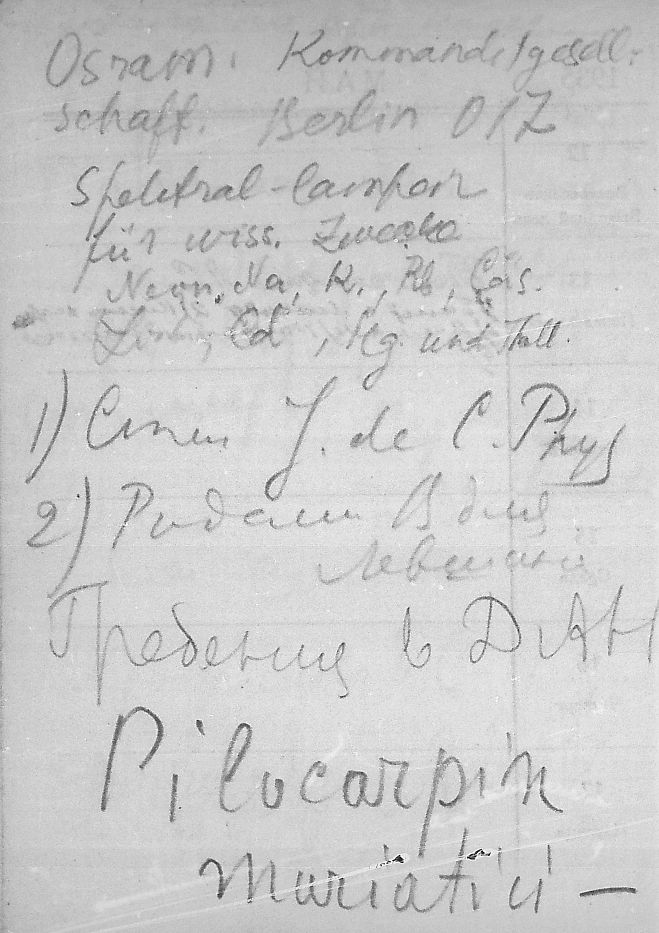 Osram. Kommanditgesell-
schaft. Berlin O17
Spektral-lampen
für wiss. Zwecke
Neon, Na, K., Rb, Cäs.
Zink, Cd, Hg und Thall.
1) J. de C. Phys
2) В
в ДАН
Pilocarpin
muriatici —